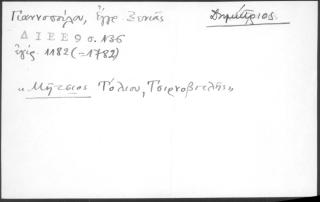 Γιαννοπούλου, ἔγγρ. Ξενιᾶς Δημήτριος
ΔΙΕΕ 9 σ. 136
ἐγγρ. 1182 (=1782)
«Μήτσιος Τόλιου, Τσιρνοβίτης»